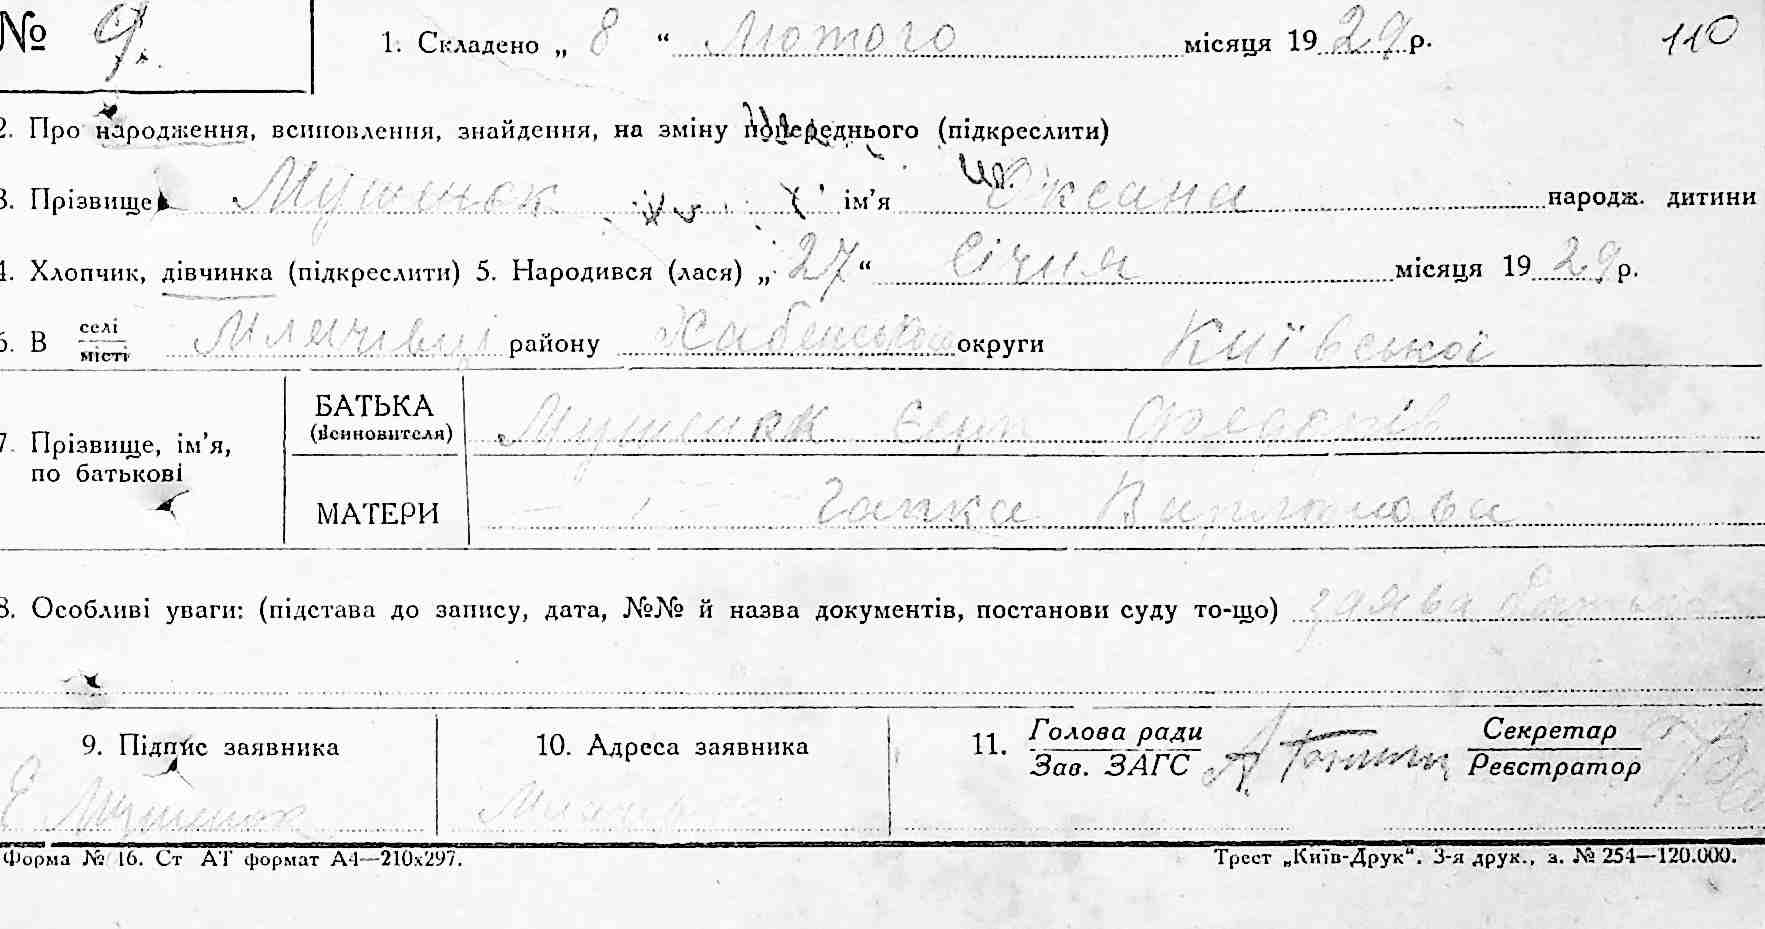 № 9. 1. Складено „ 8 “ Лютого місяця 1929 р. 110
2. Про народження, всиновлення, знайдення, на зміну попереднього (підкреслити)
3. Прізвище Мушенок ім’я Оксана народж. дитини
4. Хлопчик, дівчинка (підкреслити) 5. Народився (лася) „ 27 “ Січня місяця 1929 р.
6. В селі
місті Млячівці району Хабенського округи Київської
7. Прізвище, ім’я,
по батькові
БАТЬКА
(Всиновителя) Мушенок
МАТЕРИ Гапка
8. Особливі уваги: (підстава до запису, дата, №№ й назва документів, постанови суду то-що) заява батька
9. Підпис заявника
Є Мушенок
10. Адреса заявника
11. Голова ради
Зав. ЗАГС
Секретар
Реєстратор
Форма № 16. Ст АТ формат А4—210х297.
Трест „Київ-Друк“. 3-я друк., з. № 254—120.000.